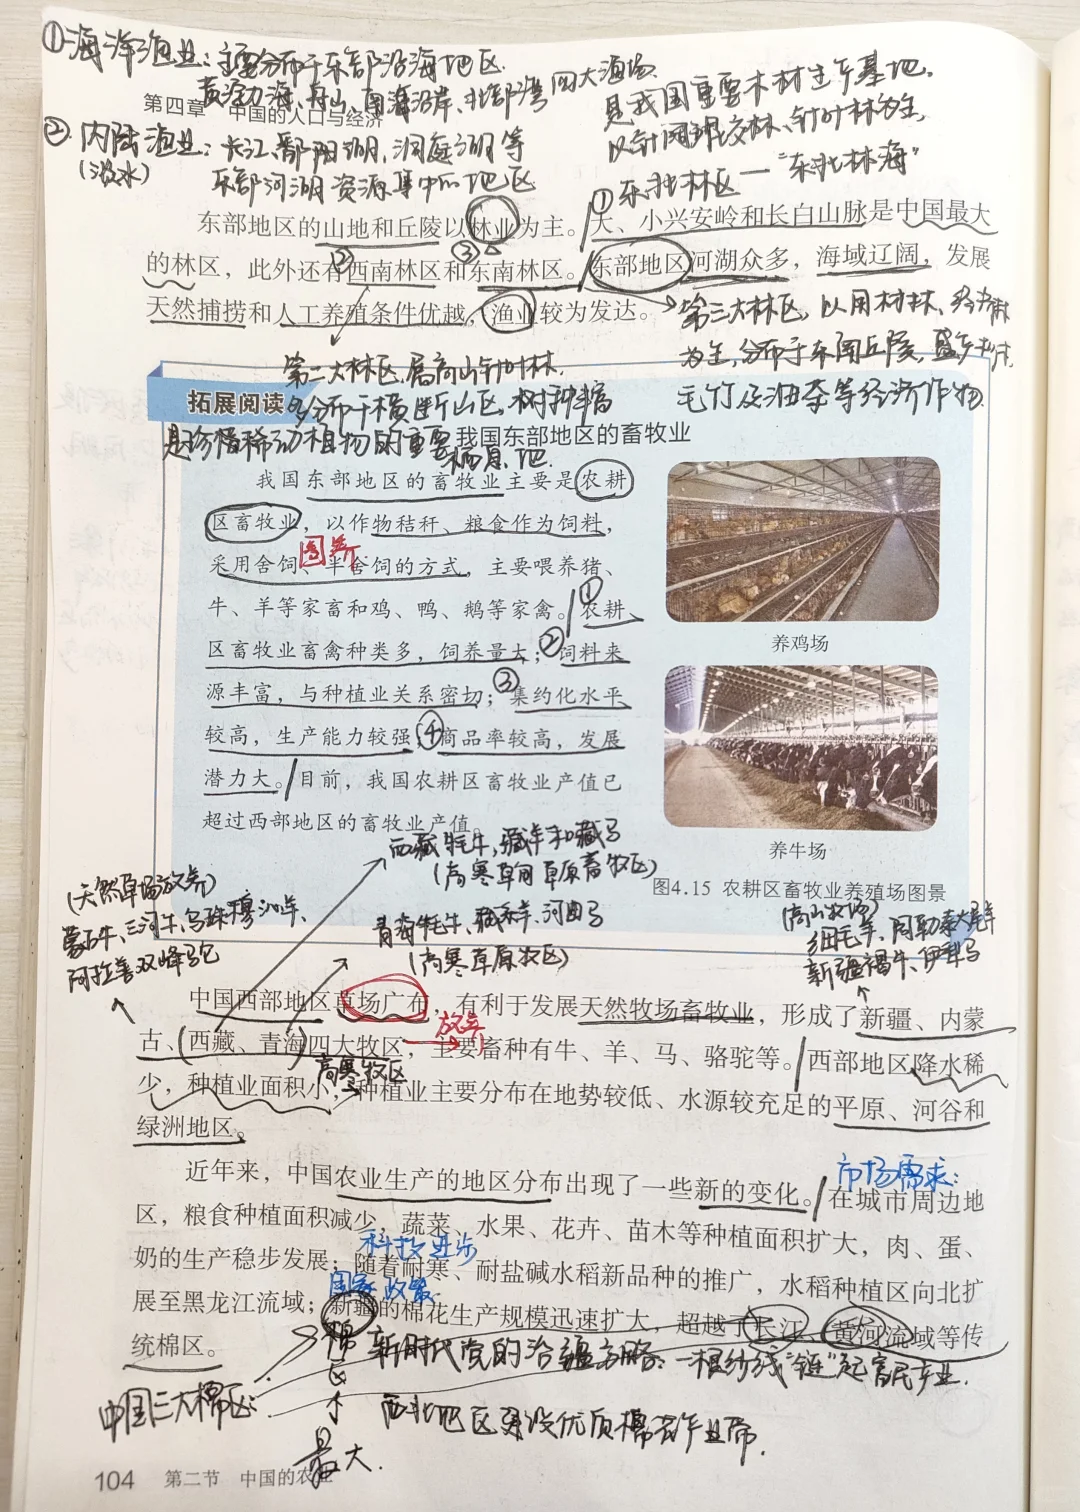 ①海洋渔业：主要分布于东部沿海地区.
黄渤海、舟山、南海沿岸、北部湾 四大渔场.
第四章 中国的人口与经济
②内陆渔业：长江、鄱阳湖、洞庭湖等
(淡水)
东部河湖资源集中的地区
是我国重要木材生产基地.
以针阔混交林、针叶林为主,
①东北林区—“东北林海”
东部地区的山地和丘陵以林业为主。大、小兴安岭和长白山脉是中国最大
的林区，此外还有②西南林区和③东南林区。东部地区河湖众多，海域辽阔，发展
天然捕捞和人工养殖条件优越，渔业较为发达。
第三大林区，以用材林、经济林
为主，分布于东南丘陵，盛产
毛竹及油茶等经济作物.
第二大林区,属高山针叶林.
多分布于横断山区,树种丰富
是珍稀动植物的重要
栖息地.
拓展阅读
我国东部地区的畜牧业
我国东部地区的畜牧业主要是农耕
区畜牧业，以作物秸秆、粮食作为饲料，
圈养
采用舍饲、半舍饲的方式，主要喂养猪、
牛、羊等家畜和鸡、鸭、鹅等家禽。①农耕
区畜牧业畜禽种类多，饲养量大；②饲料来
源丰富，与种植业关系密切；③集约化水平
较高，生产能力较强；④商品率较高，发展
潜力大。目前，我国农耕区畜牧业产值已
超过西部地区的畜牧业产值。
养鸡场
养牛场
图4.15 农耕区畜牧业养殖场图景
西藏牦牛、藏羊和藏马
(高寒草甸草原畜牧区)
青海牦牛、藏系羊、河曲马
(高寒草原牧区)
(天然草场放养)
蒙古牛、三河牛、乌珠穆沁羊、
阿拉善双峰驼
(高山牧场)
细毛羊、阿勒泰大尾羊
新疆褐牛、伊犁马
中国西部地区草场广布，有利于发展天然牧场畜牧业，形成了新疆、内蒙
放养
古、西藏、青海四大牧区，主要畜种有牛、羊、马、骆驼等。西部地区降水稀
高寒牧区
少，种植业面积小，种植业主要分布在地势较低、水源较充足的平原、河谷和
绿洲地区。
市场需求:
近年来，中国农业生产的地区分布出现了一些新的变化。在城市周边地
区，粮食种植面积减少，蔬菜、水果、花卉、苗木等种植面积扩大，肉、蛋、
科技进步
奶的生产稳步发展；随着耐寒、耐盐碱水稻新品种的推广，水稻种植区向北扩
国家政策
展至黑龙江流域；新疆的棉花生产规模迅速扩大，超越了长江、黄河流域等传
统棉区。
棉区 最大.
新时代党的治疆方略：一根纱线“链”起富民产业.
中国三大棉区:
西北地区建设优质棉花产业带.
104 第二节 中国的农业